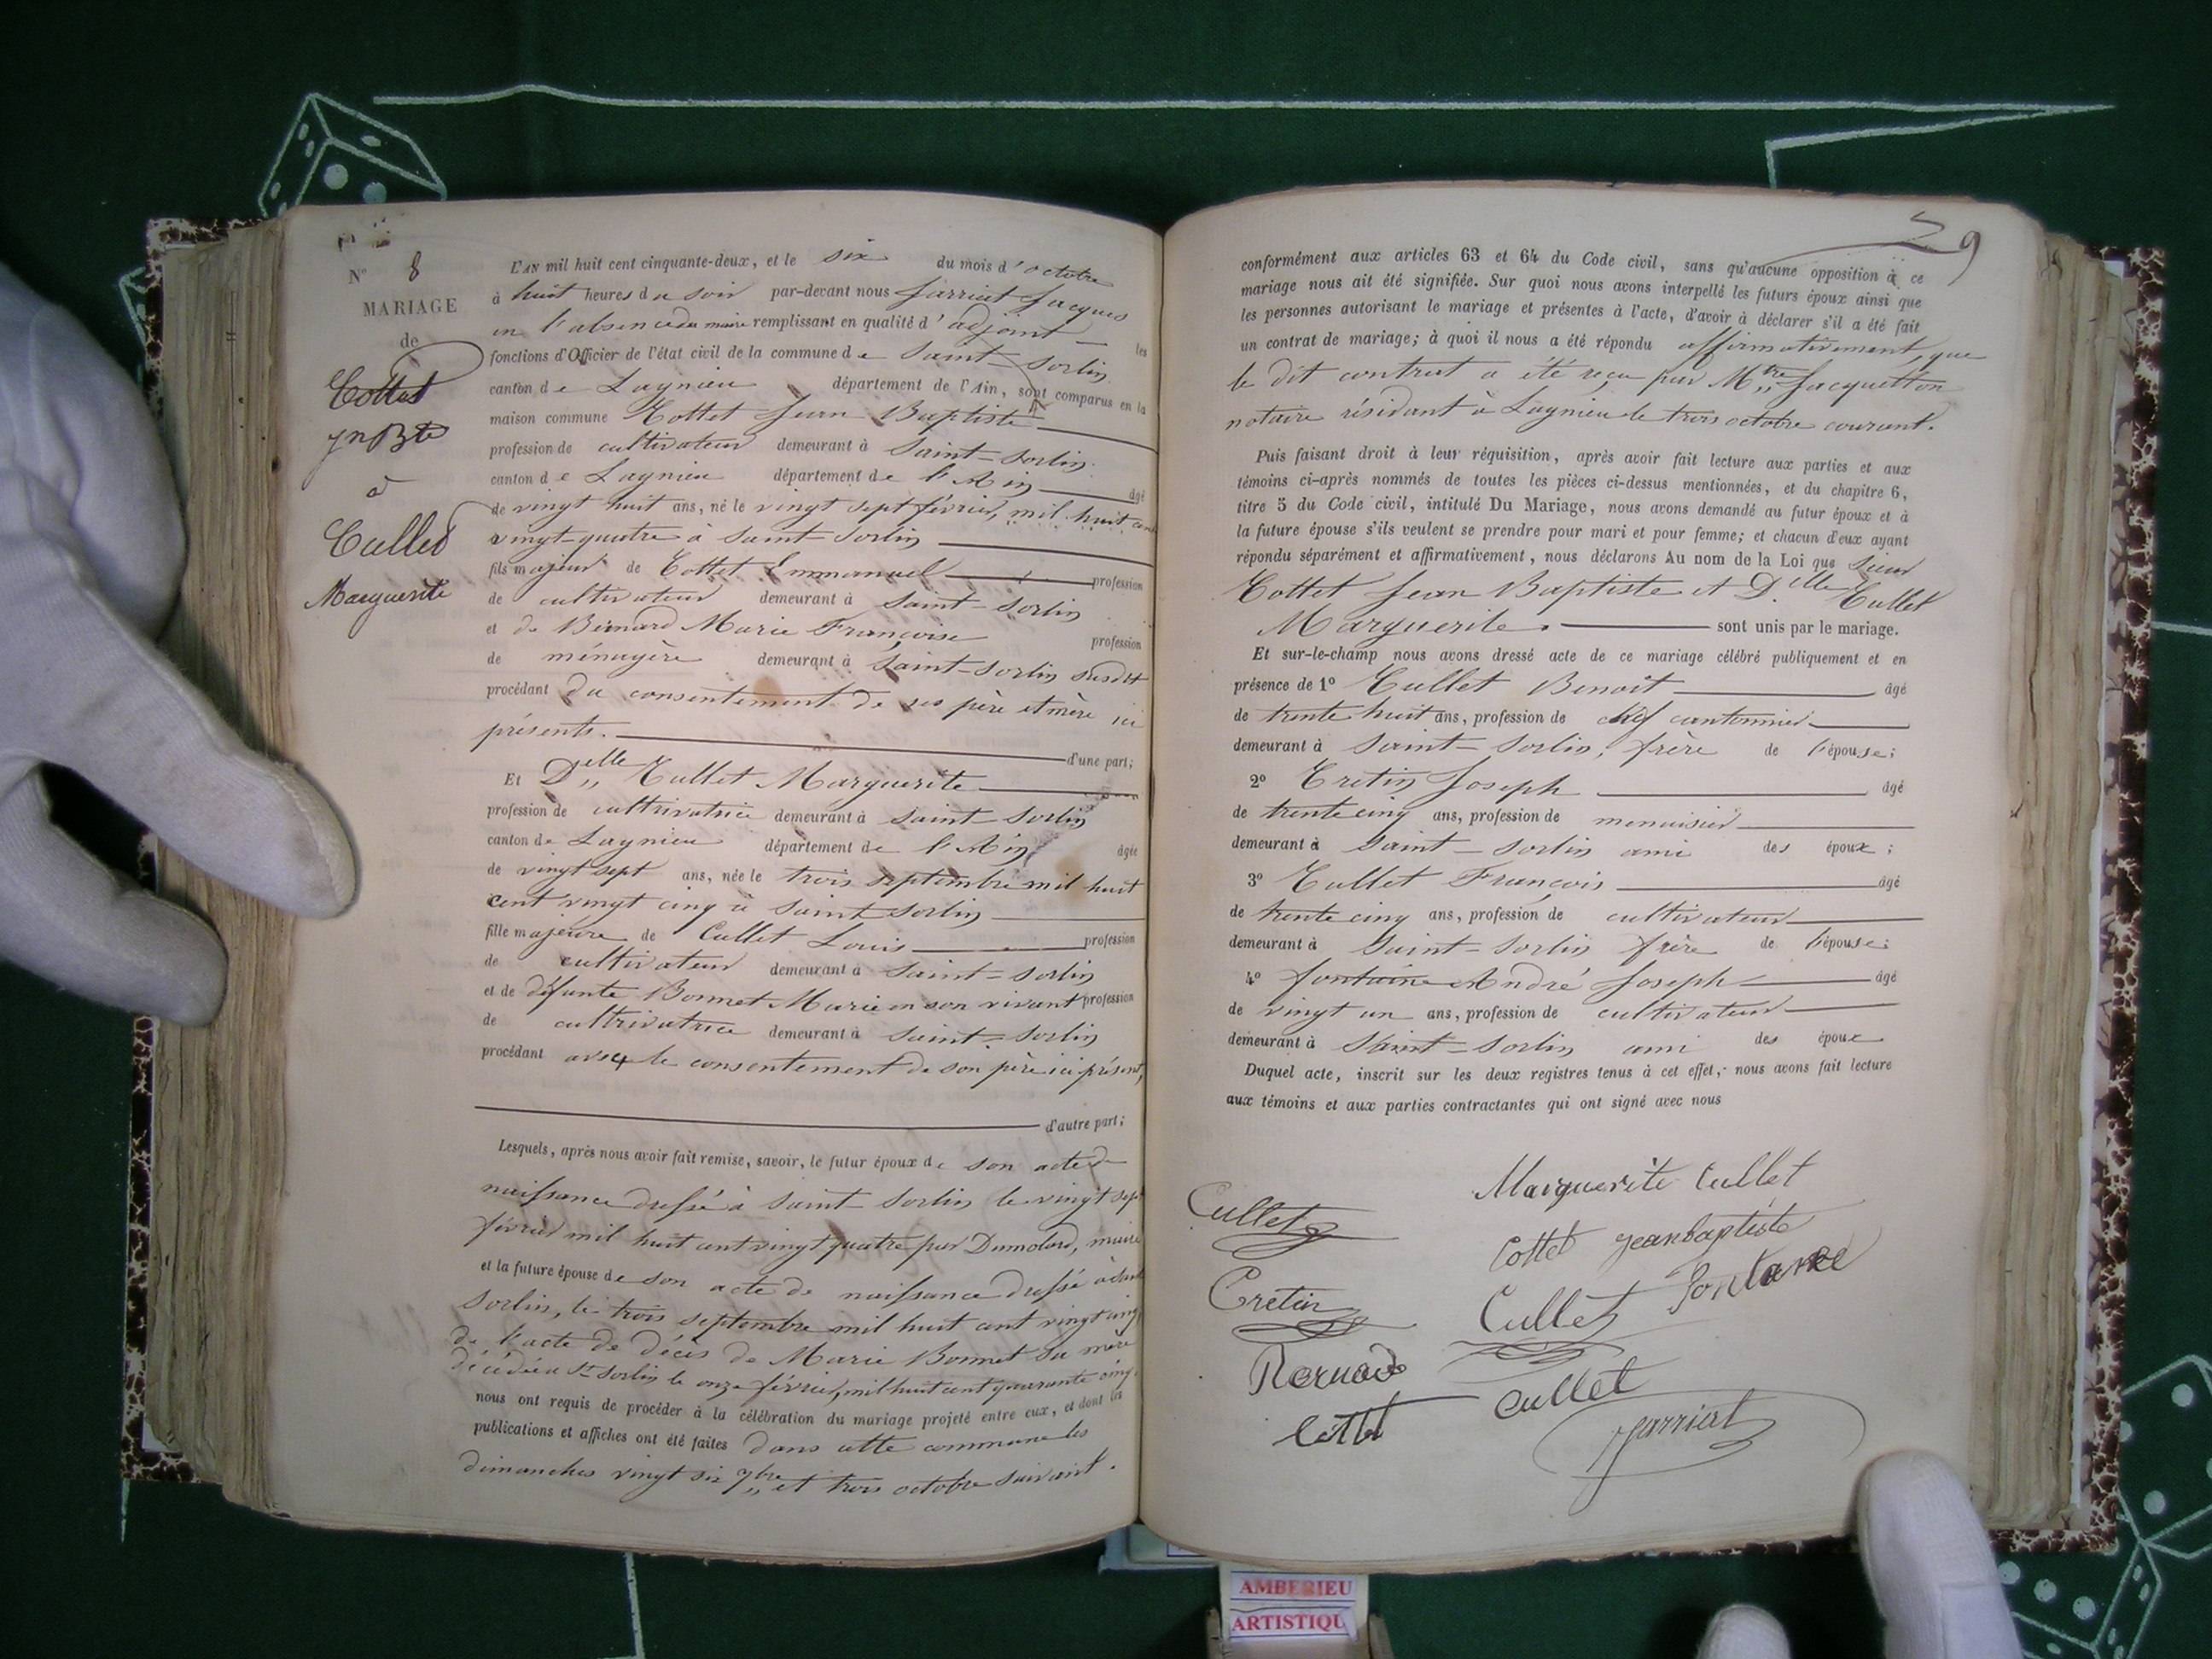 N° 8
MARIAGE
de
Cottet
Jn Bte
à
Cullet
Marguerite
L'AN mil huit cent cinquante-deux, et le six du mois d'octobre
à huit heures du soir par-devant nous Jarriat Jacques
en l'absence du maire remplissant en qualité d'adjoint les
fonctions d'Officier de l'état civil de la commune de Saint-Sorlin
canton de Lagnieu département de l'Ain, sont comparus en la
maison commune Cottet Jean Baptiste
profession de cultivateur demeurant à Saint-Sorlin
canton de Lagnieu département de l'Ain âgé
de vingt huit ans, né le vingt sept février, mil huit cent
vingt-quatre à Saint-Sorlin
fils majeur de Cottet Emmanuel profession
de cultivateur demeurant à Saint-Sorlin
et de Bernard Marie Françoise profession
de ménagère demeurant à Saint-Sorlin susdit
procédant du consentement de ses père et mère ici
présents. d'une part;
Et Delle Cullet Marguerite
profession de cultrivatrice demeurant à Saint-Sorlin
canton de Lagnieu département de l'Ain âgée
de vingt sept ans, née le trois septembre mil huit
cent vingt cinq à Saint Sorlin
fille majeure de Cullet Louis profession
de cultivateur demeurant à Saint-Sorlin
et de défunte Bonnet Marie en son vivant profession
de cultrivatrice demeurant à Saint-Sorlin
procédant avec le consentement de son père ici présent,
d'autre part;
Lesquels, après nous avoir fait remise, savoir, le futur époux de son acte de
naissance dressé à Saint Sorlin le vingt sept
février mil huit cent vingt quatre par Dumolard, maire
et la future épouse de son acte de naissance dressé à Saint
Sorlin, le trois septembre mil huit cent vingt cinq
de l'acte de décès de Marie Bonnet sa mère
décédée à St Sorlin le onze février, mil huit cent quarante cinq.
nous ont requis de procéder à la célébration du mariage projeté entre eux, et dont les
publications et affiches ont été faites dans cette commune les
dimanches vingt six 7bre et trois octobre suivant.
29
conformément aux articles 63 et 64 du Code civil, sans qu'aucune opposition à ce
mariage nous ait été signifiée. Sur quoi nous avons interpellé les futurs époux ainsi que
les personnes autorisant le mariage et présentes à l'acte, d'avoir à déclarer s'il a été fait
un contrat de mariage; à quoi il nous a été répondu affirmativement, que
le dit contrat a été reçu par Mtre Jacquetton
notaire résidant à Lagnieu le trois octobre courant.
Puis faisant droit à leur réquisition, après avoir fait lecture aux parties et aux
témoins ci-après nommés de toutes les pièces ci-dessus mentionnées, et du chapitre 6,
titre 5 du Code civil, intitulé Du Mariage, nous avons demandé au futur époux et à
la future épouse s'ils veulent se prendre pour mari et pour femme; et chacun d'eux ayant
répondu séparément et affirmativement, nous déclarons Au nom de la Loi que Sieur
Cottet Jean Baptiste et Delle Cullet
Marguerite sont unis par le mariage.
Et sur-le-champ nous avons dressé acte de ce mariage célébré publiquement et en
présence de 1° Cullet Benoit âgé
de trente huit ans, profession de chef cantonnier
demeurant à Saint-Sorlin, frère de l'épouse;
2° Cretin Joseph âgé
de trente cinq ans, profession de menuisier
demeurant à Saint-Sorlin ami des époux;
3° Cullet François âgé
de trente cinq ans, profession de cultivateur
demeurant à Saint-Sorlin frère de l'épouse;
4° fontaine André Joseph âgé
de vingt un ans, profession de cultivateur
demeurant à Saint-Sorlin ami des époux
Duquel acte, inscrit sur les deux registres tenus à cet effet, nous avons fait lecture
aux témoins et aux parties contractantes qui ont signé avec nous
Marguerite Cullet
Cullet
Cottet jeanbaptiste
Cretin
Cullet
Bernard
Cullet
Cottet
Jarriat
AMBERIEU
ARTISTIQU